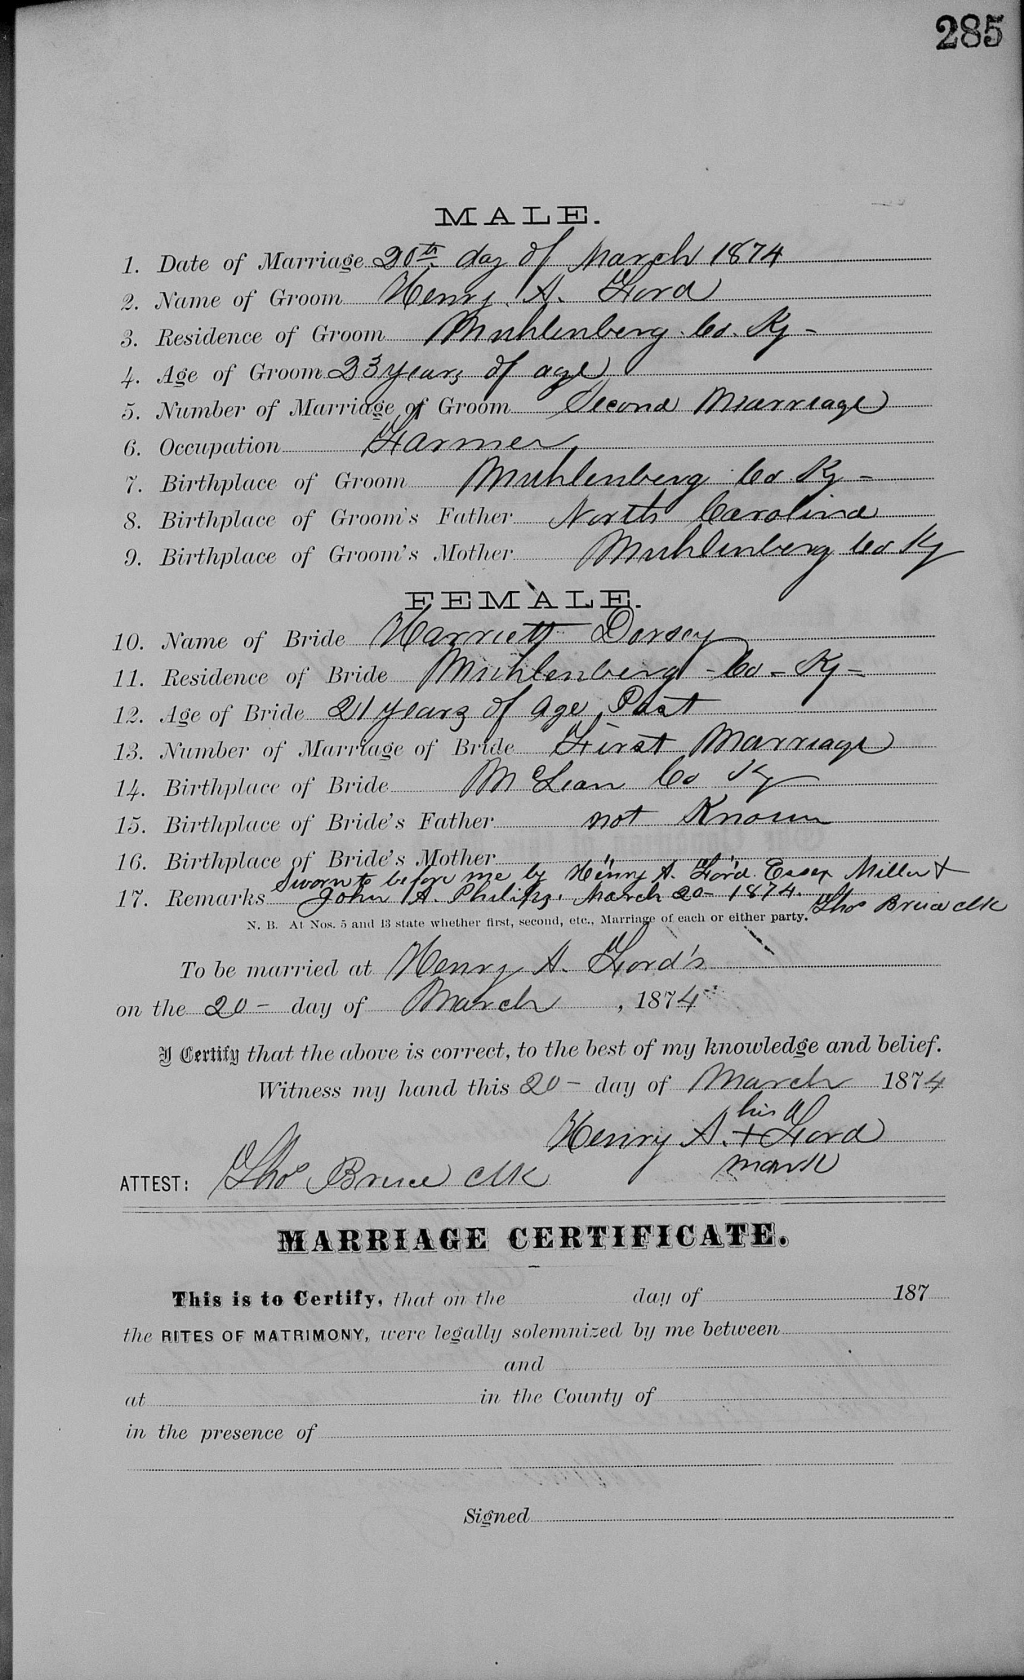 285
MALE.
1. Date of Marriage 20th day of March 1874
2. Name of Groom Henry A. Ford
3. Residence of Groom Muhlenberg Co. Ky -
4. Age of Groom 23 years of age
5. Number of Marriage of Groom Second Marriage
6. Occupation Farmer
7. Birthplace of Groom Muhlenberg Co Ky -
8. Birthplace of Groom's Father North Carolina
9. Birthplace of Groom's Mother Muhlenberg Co Ky
FEMALE.
10. Name of Bride Harriett Dorsey
11. Residence of Bride Muhlenberg - Co - Ky -
12. Age of Bride 21 years of age Past
13. Number of Marriage of Bride First Marriage
14. Birthplace of Bride McLean Co Ky
15. Birthplace of Bride's Father not Known
16. Birthplace of Bride's Mother " "
Sworn to before me by Henry A. Ford Essex Miller +
17. Remarks John A. Philips, March 20 - 1874.
Thos Bruce clk
N. B. At Nos. 5 and 13 state whether first, second, etc., Marriage of each or either party.
To be married at Henry A. Ford's
on the 20 - day of March, 1874
I Certify that the above is correct, to the best of my knowledge and belief.
Witness my hand this 20 - day of March 1874
his
Henry A. + Ford
mark
ATTEST: Thos Bruce clk
MARRIAGE CERTIFICATE.
This is to Certify, that on the day of 187
the RITES OF MATRIMONY, were legally solemnized by me between
and
at in the County of
in the presence of
Signed